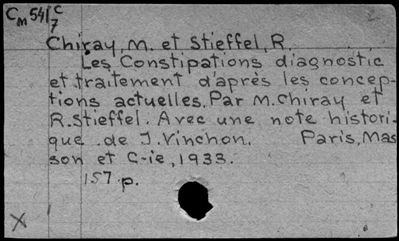 Cm 54/c7
Chiray, M. et Stieffel, R.
Les Constipations diagnostic
et traitement d'après les concep-
tions actuelles. Par M. Chiray et
R. Stieffel. Avec une note histori-
que de J. Vinchon. Paris, Mas
son et C-ie, 1933.
157 p.
X